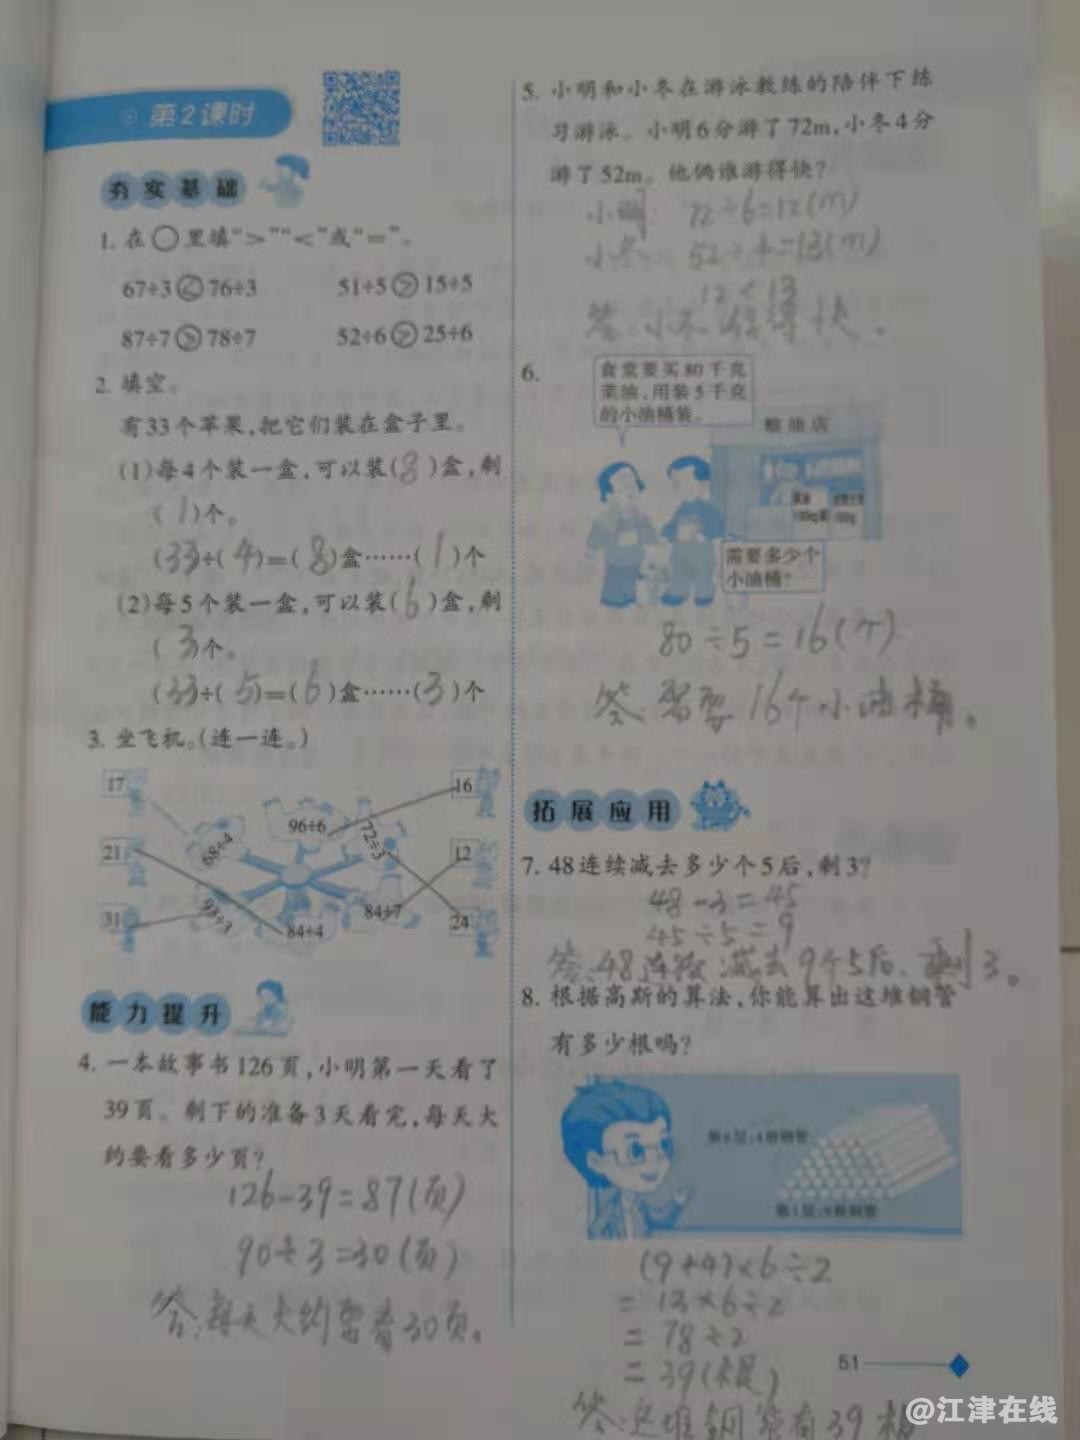 第2课时
夯实基础
1. 在○里填“>”“<”或“=”。
67÷3<76÷3 51÷5>15÷5
87÷7>78÷7 52÷6>25÷6
2. 填空。
有33个苹果,把它们装在盒子里。
(1)每4个装一盒,可以装(8)盒,剩
(1)个。
(33)÷(4)=(8)盒……(1)个
(2)每5个装一盒,可以装(6)盒,剩
(3)个。
(33)÷(5)=(6)盒……(3)个
3. 坐飞机。(连一连。)
17 96÷6 72÷3 16
21 68÷4 12
31 93÷3 84÷4 84÷7 24
能力提升
4. 一本故事书126页,小明第一天看了
39页。剩下的准备3天看完,每天大
约要看多少页?
126-39=87(页)
90÷3=30(页)
答:每天大约需看30页。
5. 小明和小冬在游泳教练的陪伴下练
习游泳。小明6分游了72m,小冬4分
游了52m。他俩谁游得快?
小明: 72÷6=12(m)
小冬: 52÷4=13(m)
12<13
答:小冬游得快。
6.
食堂要买80千克
菜油,用装5千克
的小油桶装。
粮油店
需要多少个
小油桶?
80÷5=16(个)
答:需要16个小油桶。
拓展应用
7. 48连续减去多少个5后,剩3?
48-3=45
45÷5=9
答:48连续减去9个5后,剩3。
8. 根据高斯的算法,你能算出这堆钢管
有多少根吗?
第6层:4根钢管
第1层:9根钢管
(9+4)×6÷2
=13×6÷2
=78÷2
=39(根)
答:这堆钢管有39根
51
@江津在线